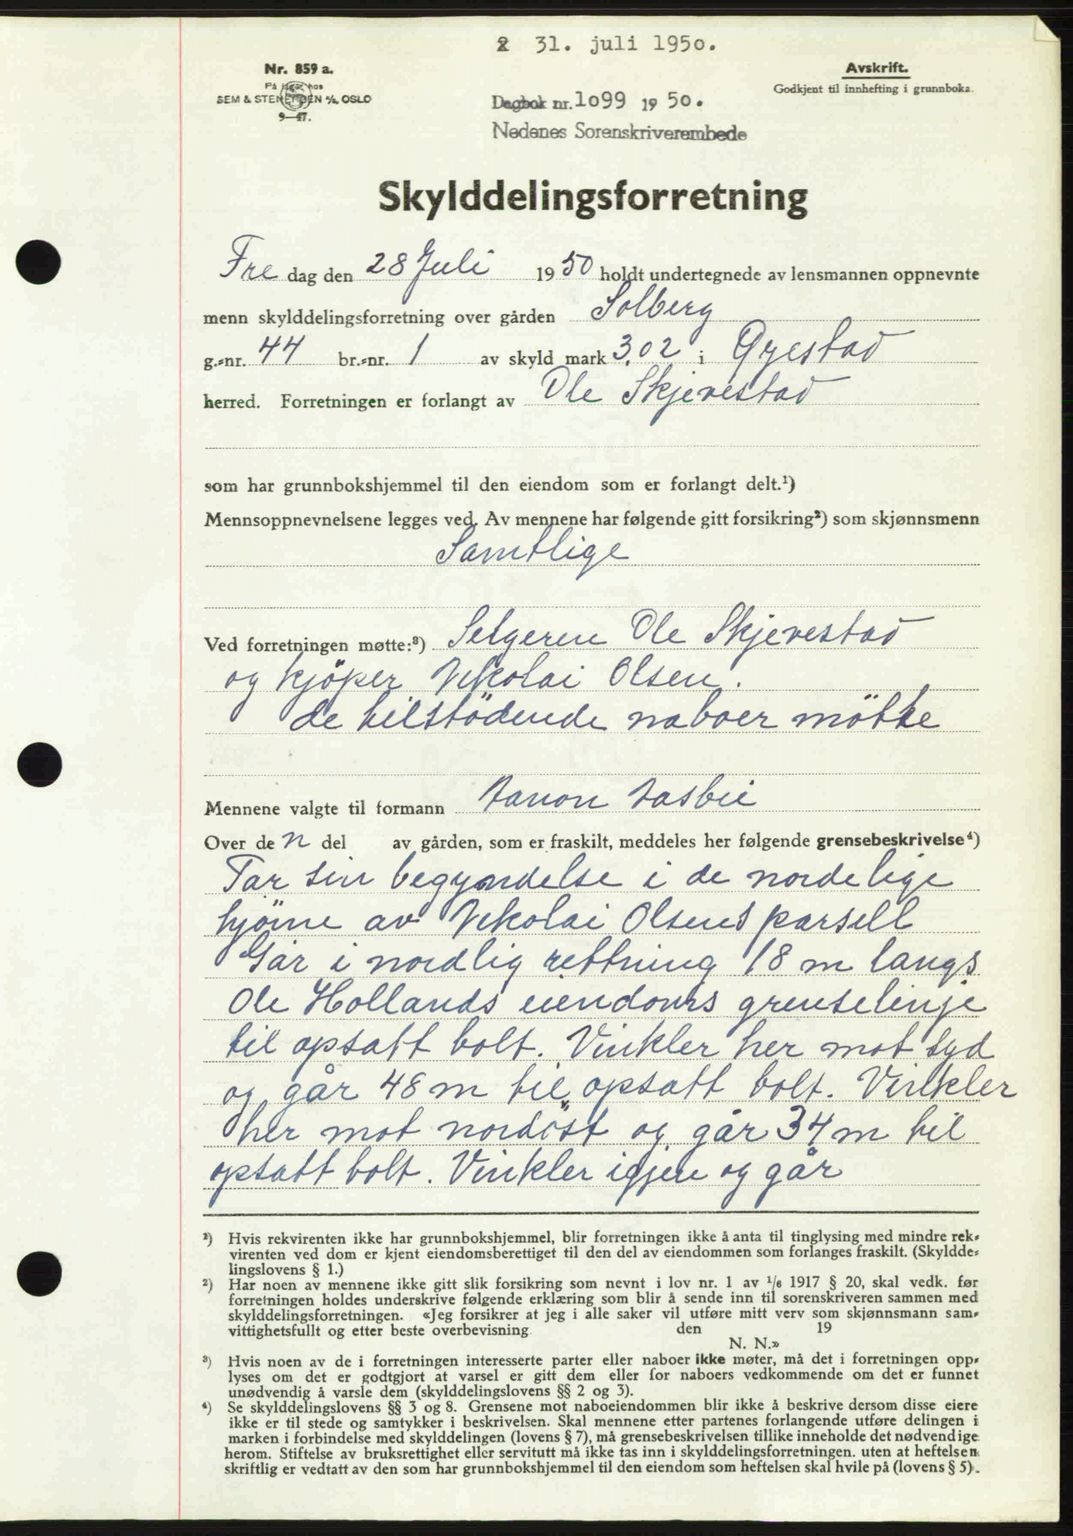 2 31. juli 1950.
Nr. 859 a.
På lager hos
SEM & STENERSEN A/S, OSLO
9—47.
Avskrift.
Godkjent til innhefting i grunnboka.
Dagbok nr. 1099 19 50.
Nedenes Sorenskriverembede
Skylddelingsforretning
Fre dag den 28 Juli 19 50 holdt undertegnede av lensmannen oppnevnte
menn skylddelingsforretning over gården Solberg
g.-nr. 44 br.-nr. 1 av skyld mark 3,02 i Øyestad
herred. Forretningen er forlangt av Ole Skjevestad
som har grunnbokshjemmel til den eiendom som er forlangt delt.¹)
Mennsoppnevnelsene legges ved. Av mennene har følgende gitt forsikring²) som skjønnsmenn
Samtlige
Ved forretningen møtte:³) Selgeren Ole Skjevestad
og kjöper Nikolai Olsen.
de tilstödende naboer mötte
Mennene valgte til formann
Over de n del av gården, som er fraskilt, meddeles her følgende grensebeskrivelse⁴)
Tar sin begyndelse i de nordelige
hjörne av Nikolai Olsens parsell
Går i nordlig rettning 18 m langs
Ole Hollands eiendoms grenselinje
til opsatt bolt. Vinkler her mot syd
og går 48 m til opsatt bolt. Vinkler
her mot nordöst og går 34 m til
opsatt bolt. Vinkler igjen og går
¹) Hvis rekvirenten ikke har grunnbokshjemmel, blir forretningen ikke å anta til tinglysing med mindre rek-
virenten ved dom er kjent eiendomsberettiget til den del av eiendommen som forlanges fraskilt. (Skyldde-
lingslovens § 1.)
²) Har noen av mennene ikke gitt slik forsikring som nevnt i lov nr. 1 av 1/6 1917 § 20, skal vedk. før
forretningen holdes underskrive følgende erklæring som blir å sende inn til sorenskriveren sammen med
skylddelingsforretningen. «Jeg forsikrer at jeg i alle saker vil utføre mitt verv som skjønnsmann sam-
vittighetsfullt og etter beste overbevisning. den 19
N. N.»
³) Hvis noen av de i forretningen interesserte parter eller naboer ikke møter, må det i forretningen opp-
lyses om det er godtgjort at varsel er gitt dem eller for naboers vedkommende om det er funnet
unødvendig å varsle dem (skylddelingslovens §§ 2 og 3).
⁴) Se skylddelingslovens §§ 3 og 8. Grensene mot naboeiendommen blir ikke å beskrive dersom disse eiere
ikke er til stede og samtykker i beskrivelsen. Skal mennene etter partenes forlangende utføre delingen i
marken i forbindelse med skylddelingen (lovens § 7), må grensebeskrivelsen tillike inneholde det nødvendige
herom. Stiftelse av bruksrettighet eller servitutt må ikke tas inn i skylddelingsforretningen, uten at heftelsen
skriftlig er vedtatt av den som har grunnbokshjemmel til den eiendom som heftelsen skal hvile på (lovens § 5).